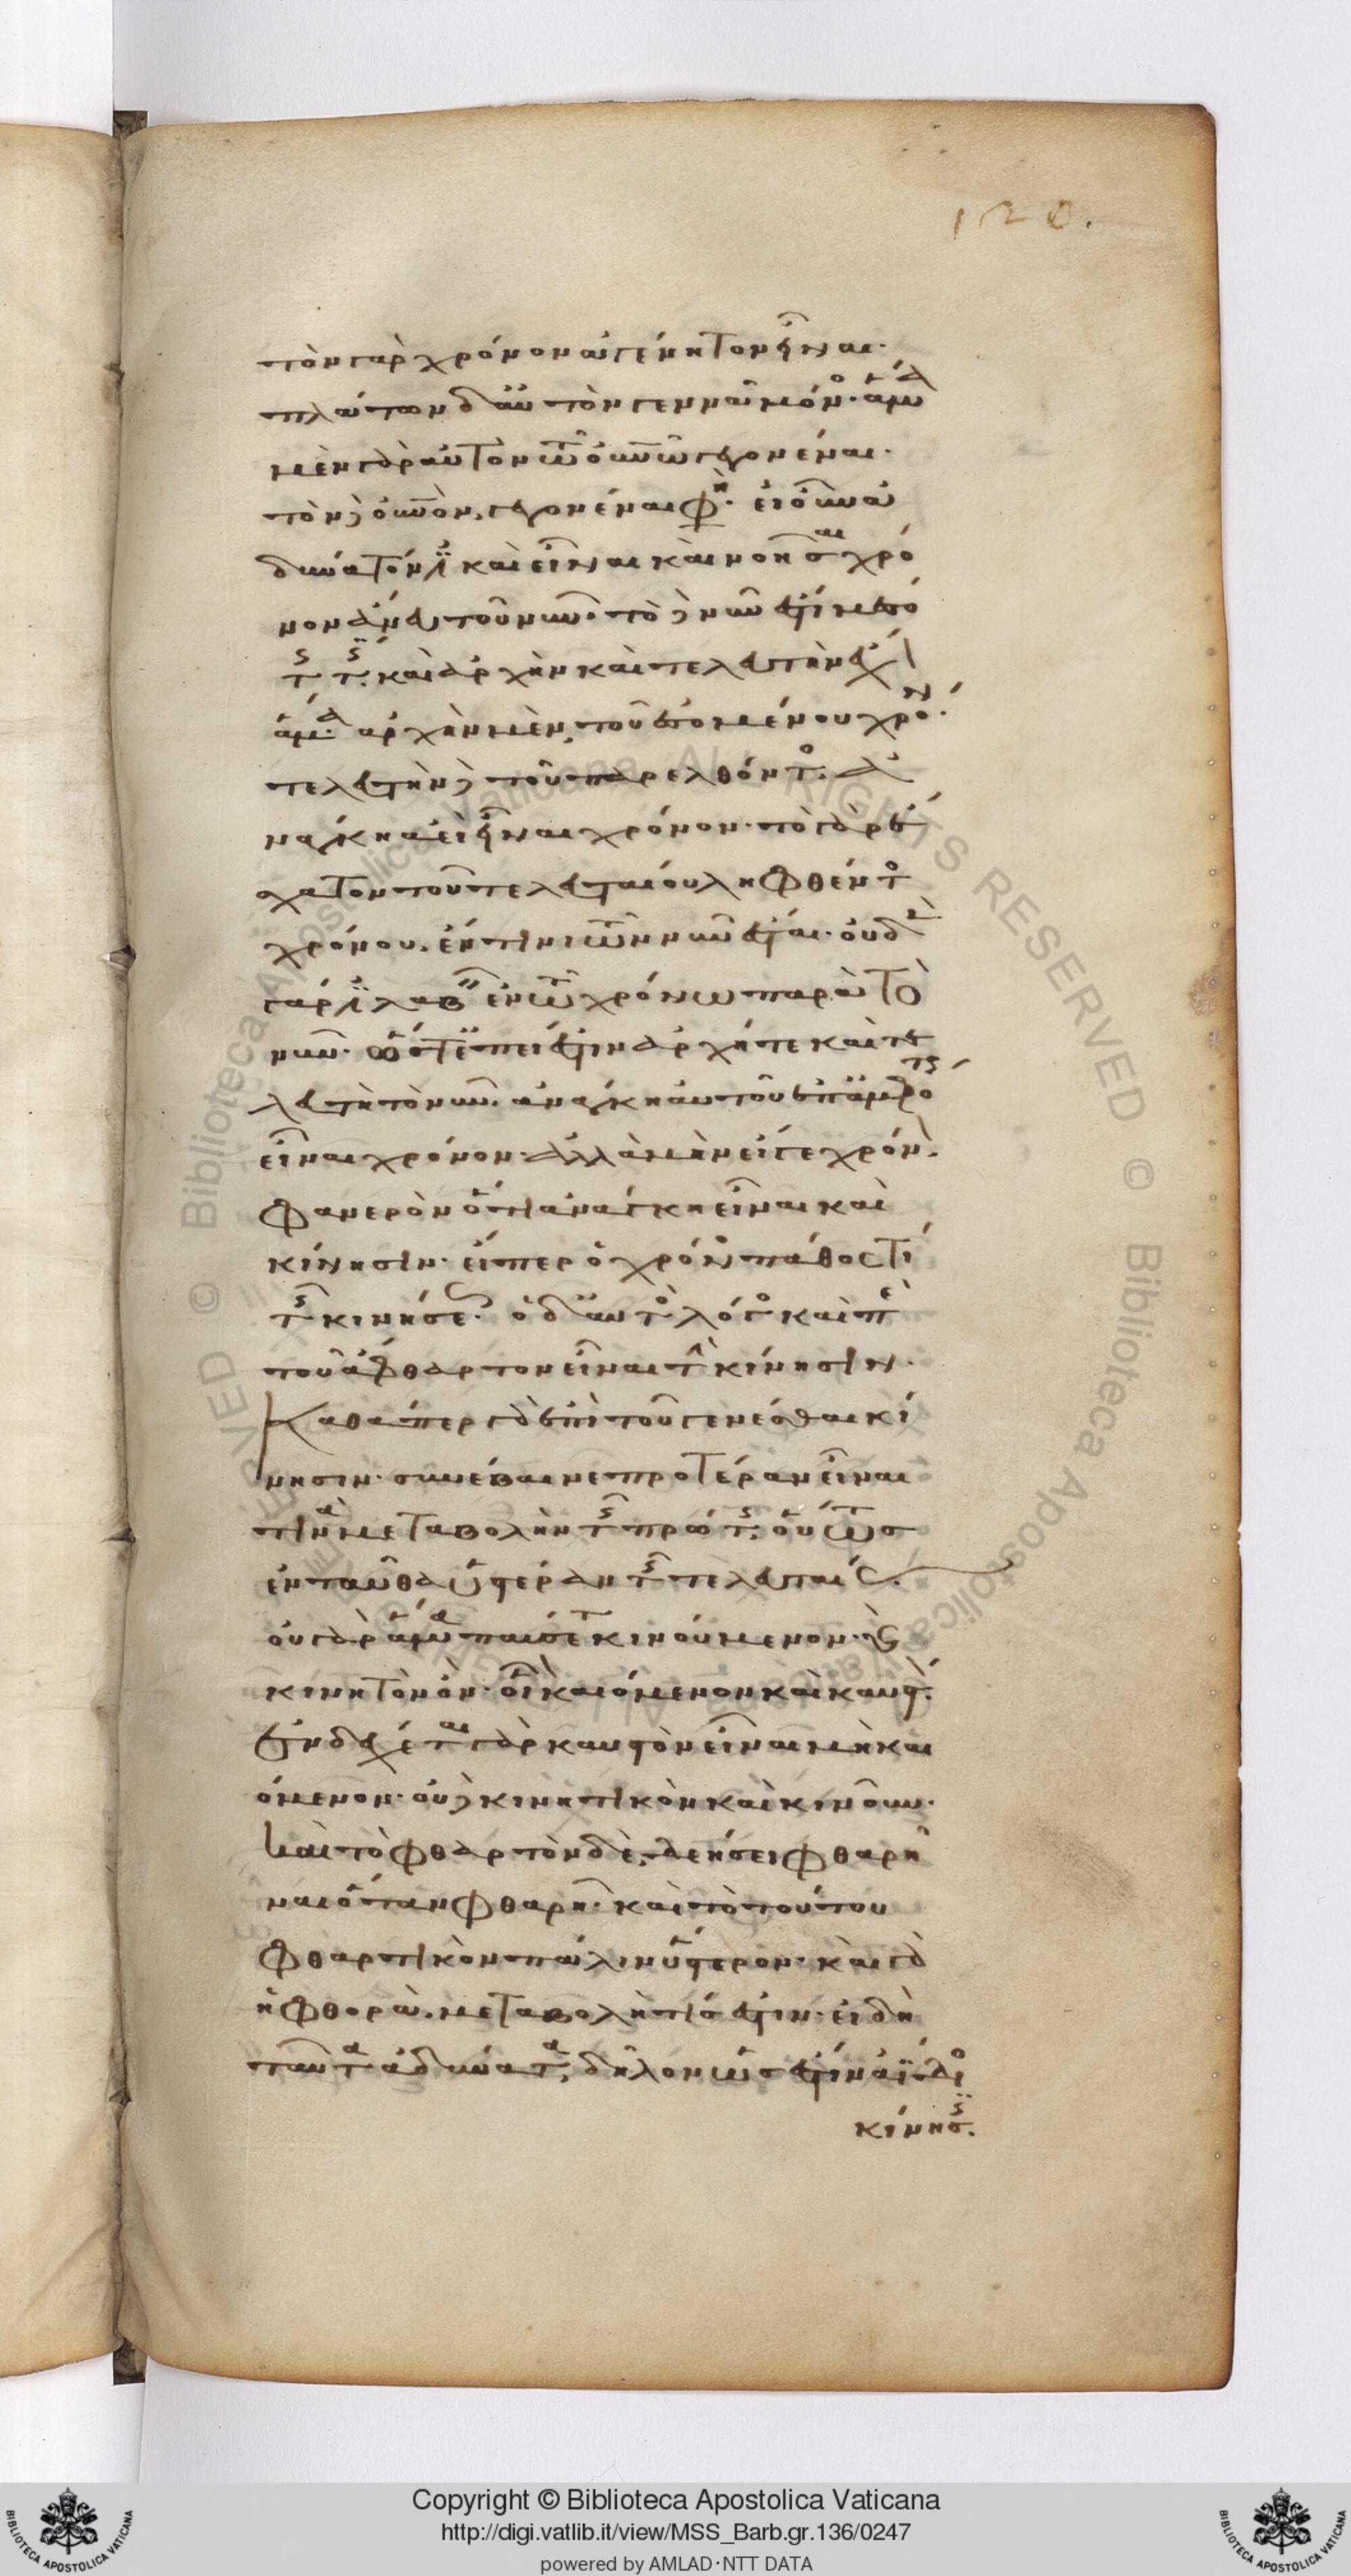 120.
τὸν γὰρ χρόνον ἀγένητον εἶναι·
πλάτων δ' αὐτὸν γεννᾶ μόνος· ἅμα
μὲν γὰρ αὐτὸν τῶ οὐνῶ γεγονέναι·
τὸν δὲ οὐνὸν, γεγονέναι φη· εἰ οὖν ἀ
δύνατόν ἐστι καὶ εἶναι καὶ νοῆσαι χρό
νον ἄνευ τοῦ νῦν· τὸ δὲ νῦν ἐστί μεσό
της τις· καὶ ἀρχὴν καὶ τελευτὴν ἔχον
ἅμα· ἀρχὴν μὲν, τοῦ ἐσομένου χρόνου·
τελευτὴν δὲ τοῦ παρελθόντος· ἀ
νάγκη ἀεὶ εἶναι χρόνον· τὸ γὰρ ἔ
σχατον τοῦ τελευταίου ληφθέντος
χρόνου. ἔν τινι τῶν νῦν ἔσται· οὐδὲν
γάρ ἐστι λαβεῖν ἐν τῶ χρόνω παρὰ τὸ
νῦν· ὥστ' ἐπεί ἐστιν ἀρχή τε καὶ τε
λευτὴ τὸ νῦν. ἀνάγκη αὐτοῦ ἐπ' ἀμφότερα
εἶναι χρόνον· ἀλλὰ μὴν εἴ γε χρόνον.
φανερὸν ὅτι ἀνάγκη εἶναι καὶ
κίνησιν· εἴπερ ὁ χρόνος πάθος τί
τῆς κινήσεως· ὁ δ' αὐτὸς λόγος καὶ περὶ
τοῦ ἄφθαρτον εἶναι τὴν κίνησιν·
Καθάπερ γὰρ ἐπὶ τοῦ γενέσθαι κί
νησιν· συνέβαινε προτέραν εἶναι
τινὰ μεταβολὴν τῆς πρώτης· οὕτως
ἐνταῦθα ὑστέραν τῆς τελευταίας·
οὐ γὰρ ἅμα παύεται κινούμενον· καὶ
κινητὸν ὄν· οἷον καιόμενον καὶ καυστόν·
ἐνδέχεται γὰρ καυστὸν εἶναι μὴ και
όμενον· οὐδὲ κινητικὸν καὶ κινοῦν·
Καὶ τὸ φθαρτὸν δὲ, δεήσει φθαρῆ
ναι ὅταν φθαρῆ· καὶ τὸ τούτου
φθαρτικὸν πάλιν ὕστερον· καὶ γὰρ
ἡ φθορὰ, μεταβολή τίς ἐστιν· εἰ δὴ
ταῦτα ἀδύνατα, δῆλον ὡς ἐστὶν ἀΐδιος
κίνησις.
Copyright © Biblioteca Apostolica Vaticana
http://digi.vatlib.it/view/MSS_Barb.gr.136/0247
powered by AMLAD·NTT DATA